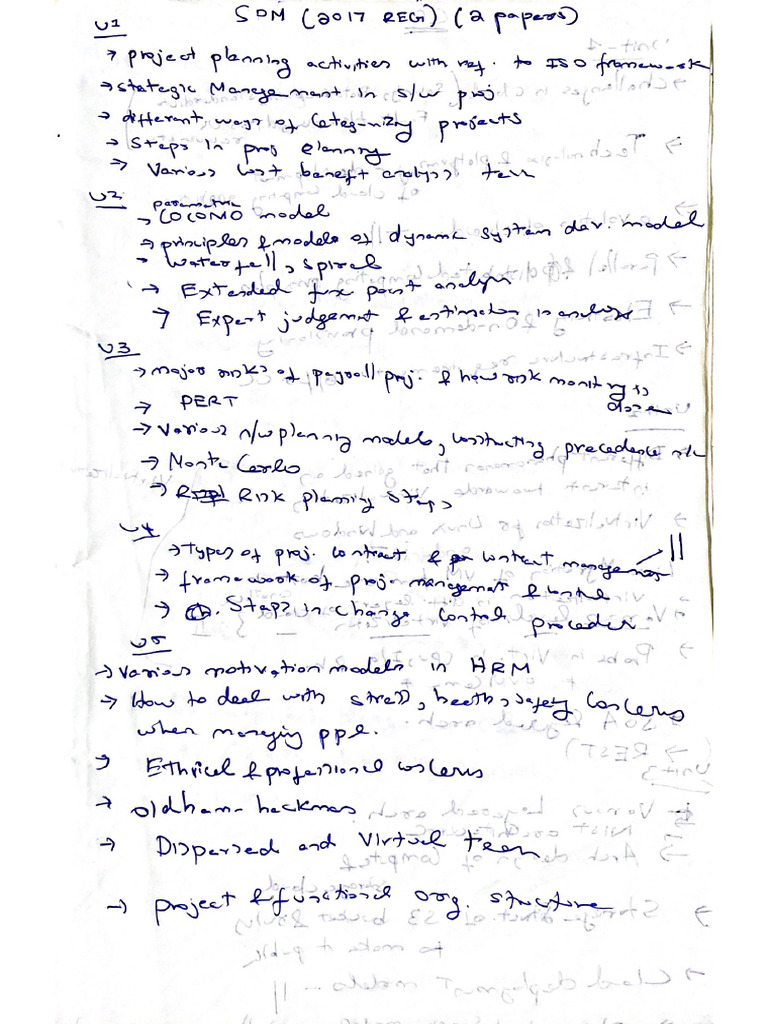 SOM (2017 REG) (2 papers)
U1
→ project planning activities with ref. to ISO framework
→ stategic Management in s/w proj
→ different ways of Categ-rizing projects
→ Steps in proj planning
→ Various cost benefit analysis tech
U2 parametric
→ COCOMO model
→ principles & models of dynamic system dev. model
→ Waterfall, spiral
→ Extended func point analysis
→ Expert judgement & estimation in analysis
U3
→ major risks of payroll proj. & how risk monitoring is
done
→ PERT
→ Various n/w planning models, constructing precedence n/w
→ Monte Carlo
→ Risk planning Steps
U4
→ types of proj. contract & contract management
→ framework of proj management & control
→ Steps in change control proceder
U5
→ Various motivation models in HRM
→ How to deal with stress, health, safety Concerns
when managing ppl.
→ Ethical & professional concerns
→ oldham-hackman
→ Dispersed and Virtual team
→ project & functional org. structure